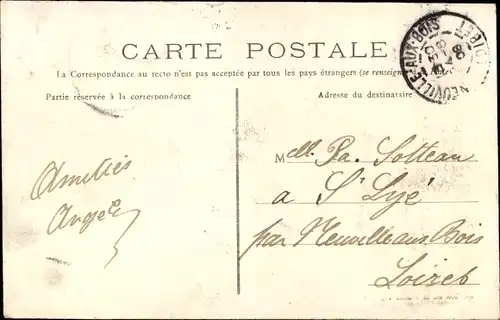 CARTE POSTALE
La Correspondance au recto n'est pas acceptée par tous les pays étrangers (se renseigne
Partie réservée à la correspondance
Adresse du destinataire
NEUVILLE-AUX-BOIS LOIRET
08
Amitiés
Angèle
Melle Pa. Sotteau
à St Lyé
par Neuville aux Bois
Loiret